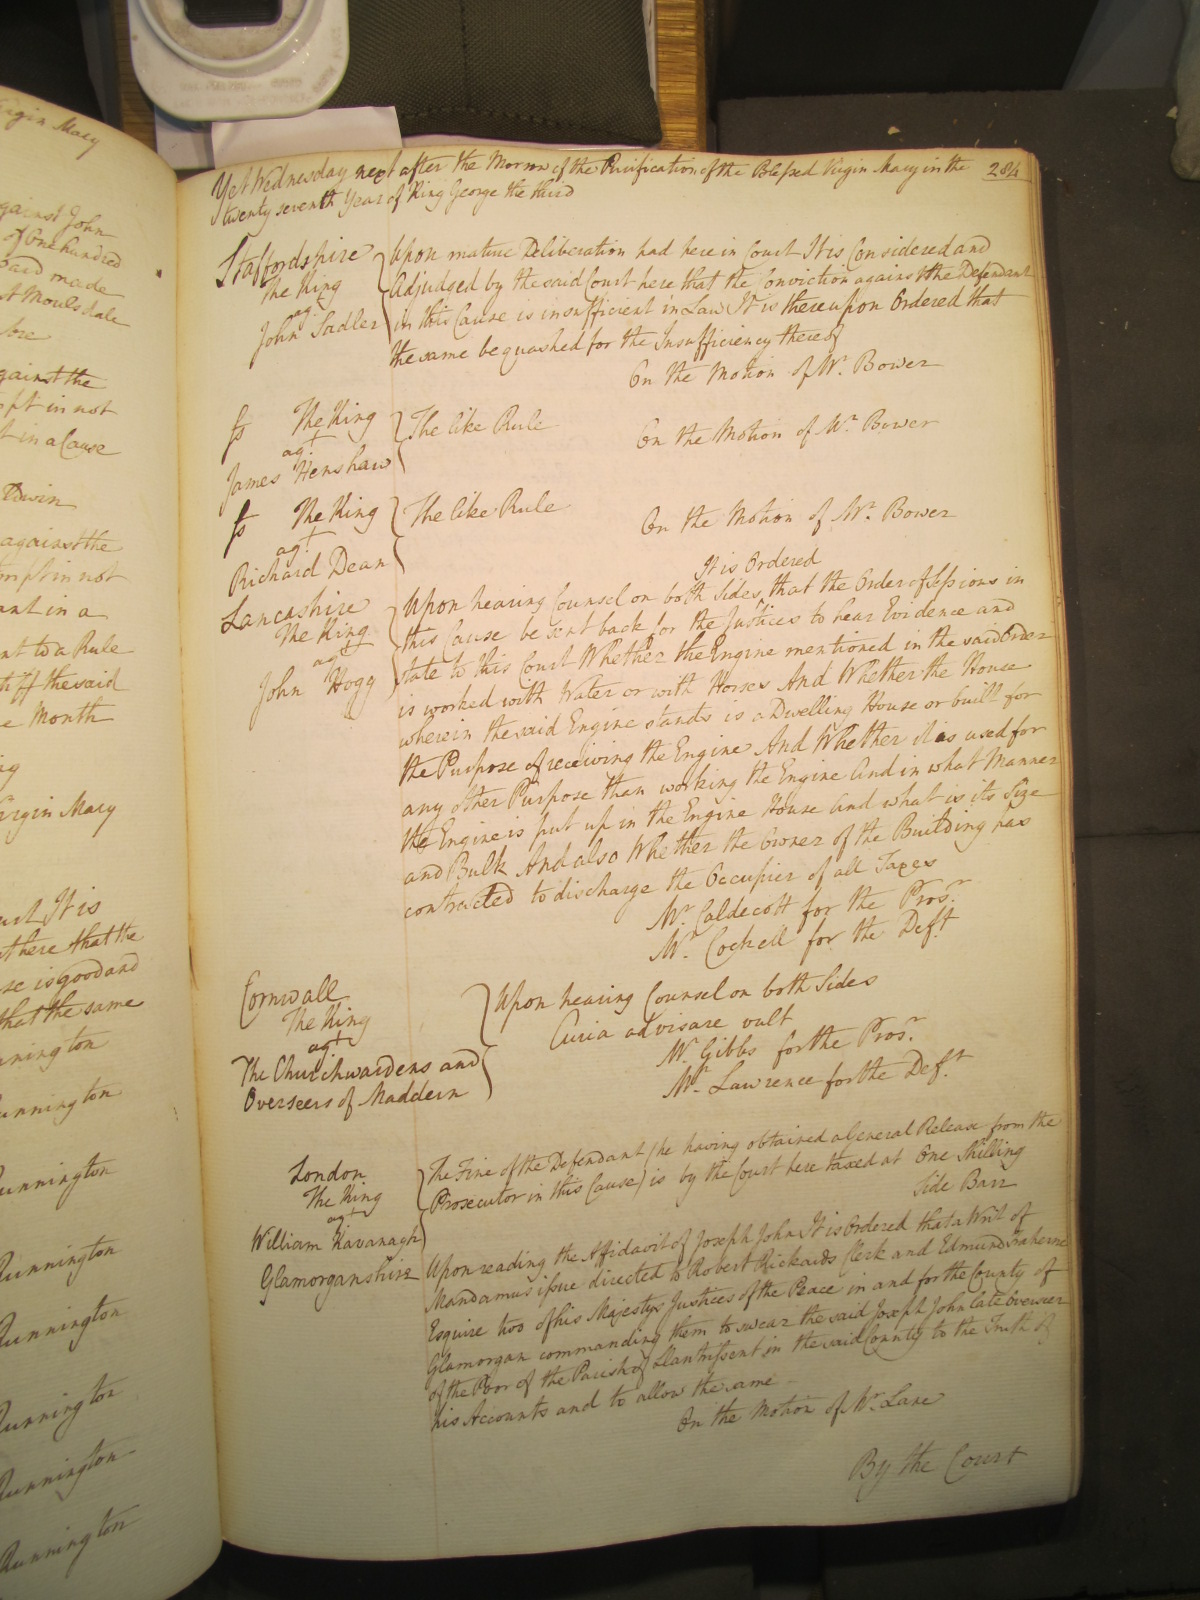 irgin Mary
gainst John
of One hundred
paid made
at Moulsdale
bre
gainst the
pt in not
t in a Cause
Darwin
against the
mpt in not
ant in a
nt to a Rule
tiff the said
e Month
ng
irgin Mary
urt It is
there that the
se is good and
that the same
unnington
unnington
unnington
Runnington
Runnington
Runnington
Runnington
Runnington
Yet Wednesday next after the Morrow of the Purification of the Blessed Virgin Mary in the 284
twenty seventh Year of King George the third
Staffordshire
The King
agt
John Sadler
Upon mature Deliberation had here in Court It is Considered and
Adjudged by the said Court here that the Conviction against the Defendant
in this Cause is insufficient in Law It is thereupon Ordered that
the same be quashed for the Insufficiency thereof
On the Motion of Mr. Bower
ss The King
agt
James Henshaw
The like Rule On the Motion of Mr. Bower
ss The King
agt
Richard Dean
The like Rule On the Motion of Mr. Bower
Lancashire
The King
agt
John Hogg
It is Ordered
Upon hearing Counsel on both Sides that the Order of Sessions in
this Cause be sent back for the Justices to hear Evidence and
state to this Court Whether the Engine mentioned in the said Order
is worked with Water or with Horses And Whether the House
wherein the said Engine stands is a Dwelling House or built for
the Purpose of receiving the Engine And Whether it is used for
any other Purpose than working the Engine And in what Manner
the Engine is put up in the Engine House And what is its Size
and Bulk And also Whether the Owner of the Building has
contracted to discharge the Occupier of all Taxes
Mr. Caldecott for the Prosr.
Mr. Cockell for the Deft
Cornwall
The King
agt
The Churchwardens and
Overseers of Maddern
Upon hearing Counsel on both Sides
Curia advisare vult
Mr. Gibbs for the Prosr.
Mr. Lawrence for the Deft
London
The King
agt
William Kavanagh
The Fine of the Defendant (he having obtained a General Release from the
Prosecutor in this Cause) is by the Court here taxed at One Shilling
Side Barr
Glamorganshire
Upon reading the Affidavit of Joseph John It is Ordered that a Writ of
Mandamus issue directed to Robert Rickards Clerk and Edmund Traherne
Esquire two of his Majestys Justices of the Peace in and for the County of
Glamorgan commanding them to swear the said Joseph John late Overseer
of the Poor of the Parish of Llantrissent in the said County to the Truth of
his Accounts and to allow the same
On the Motion of Mr. Lane
By the Court